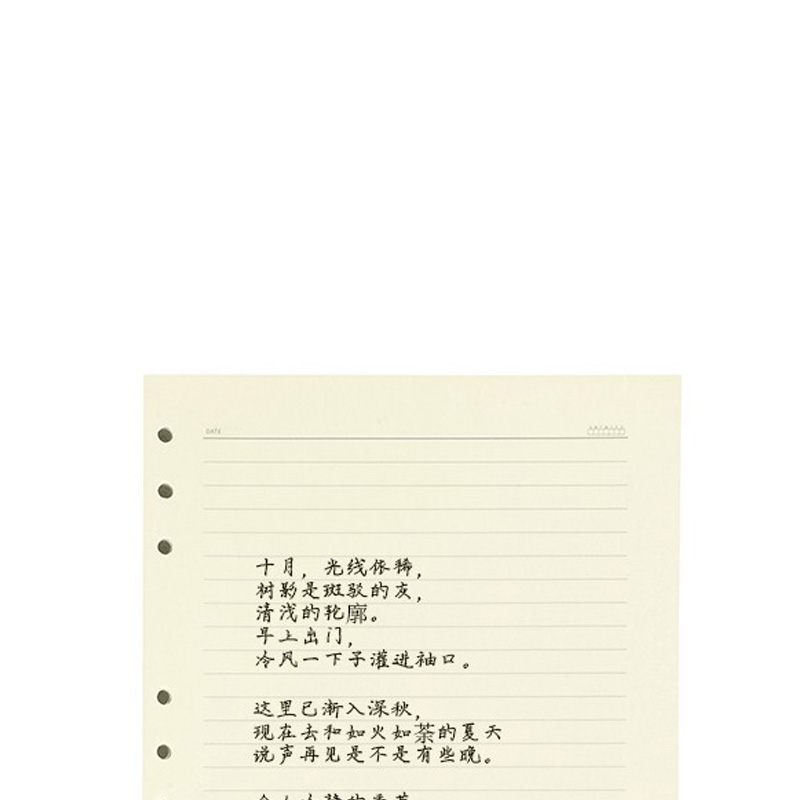 DATE
十月，光线依稀，
树影是斑驳的灰，
清浅的轮廓。
早上出门，
冷风一下子灌进袖口。
这里已渐入深秋，
现在去和如火如荼的夏天
说声再见是不是有些晚。